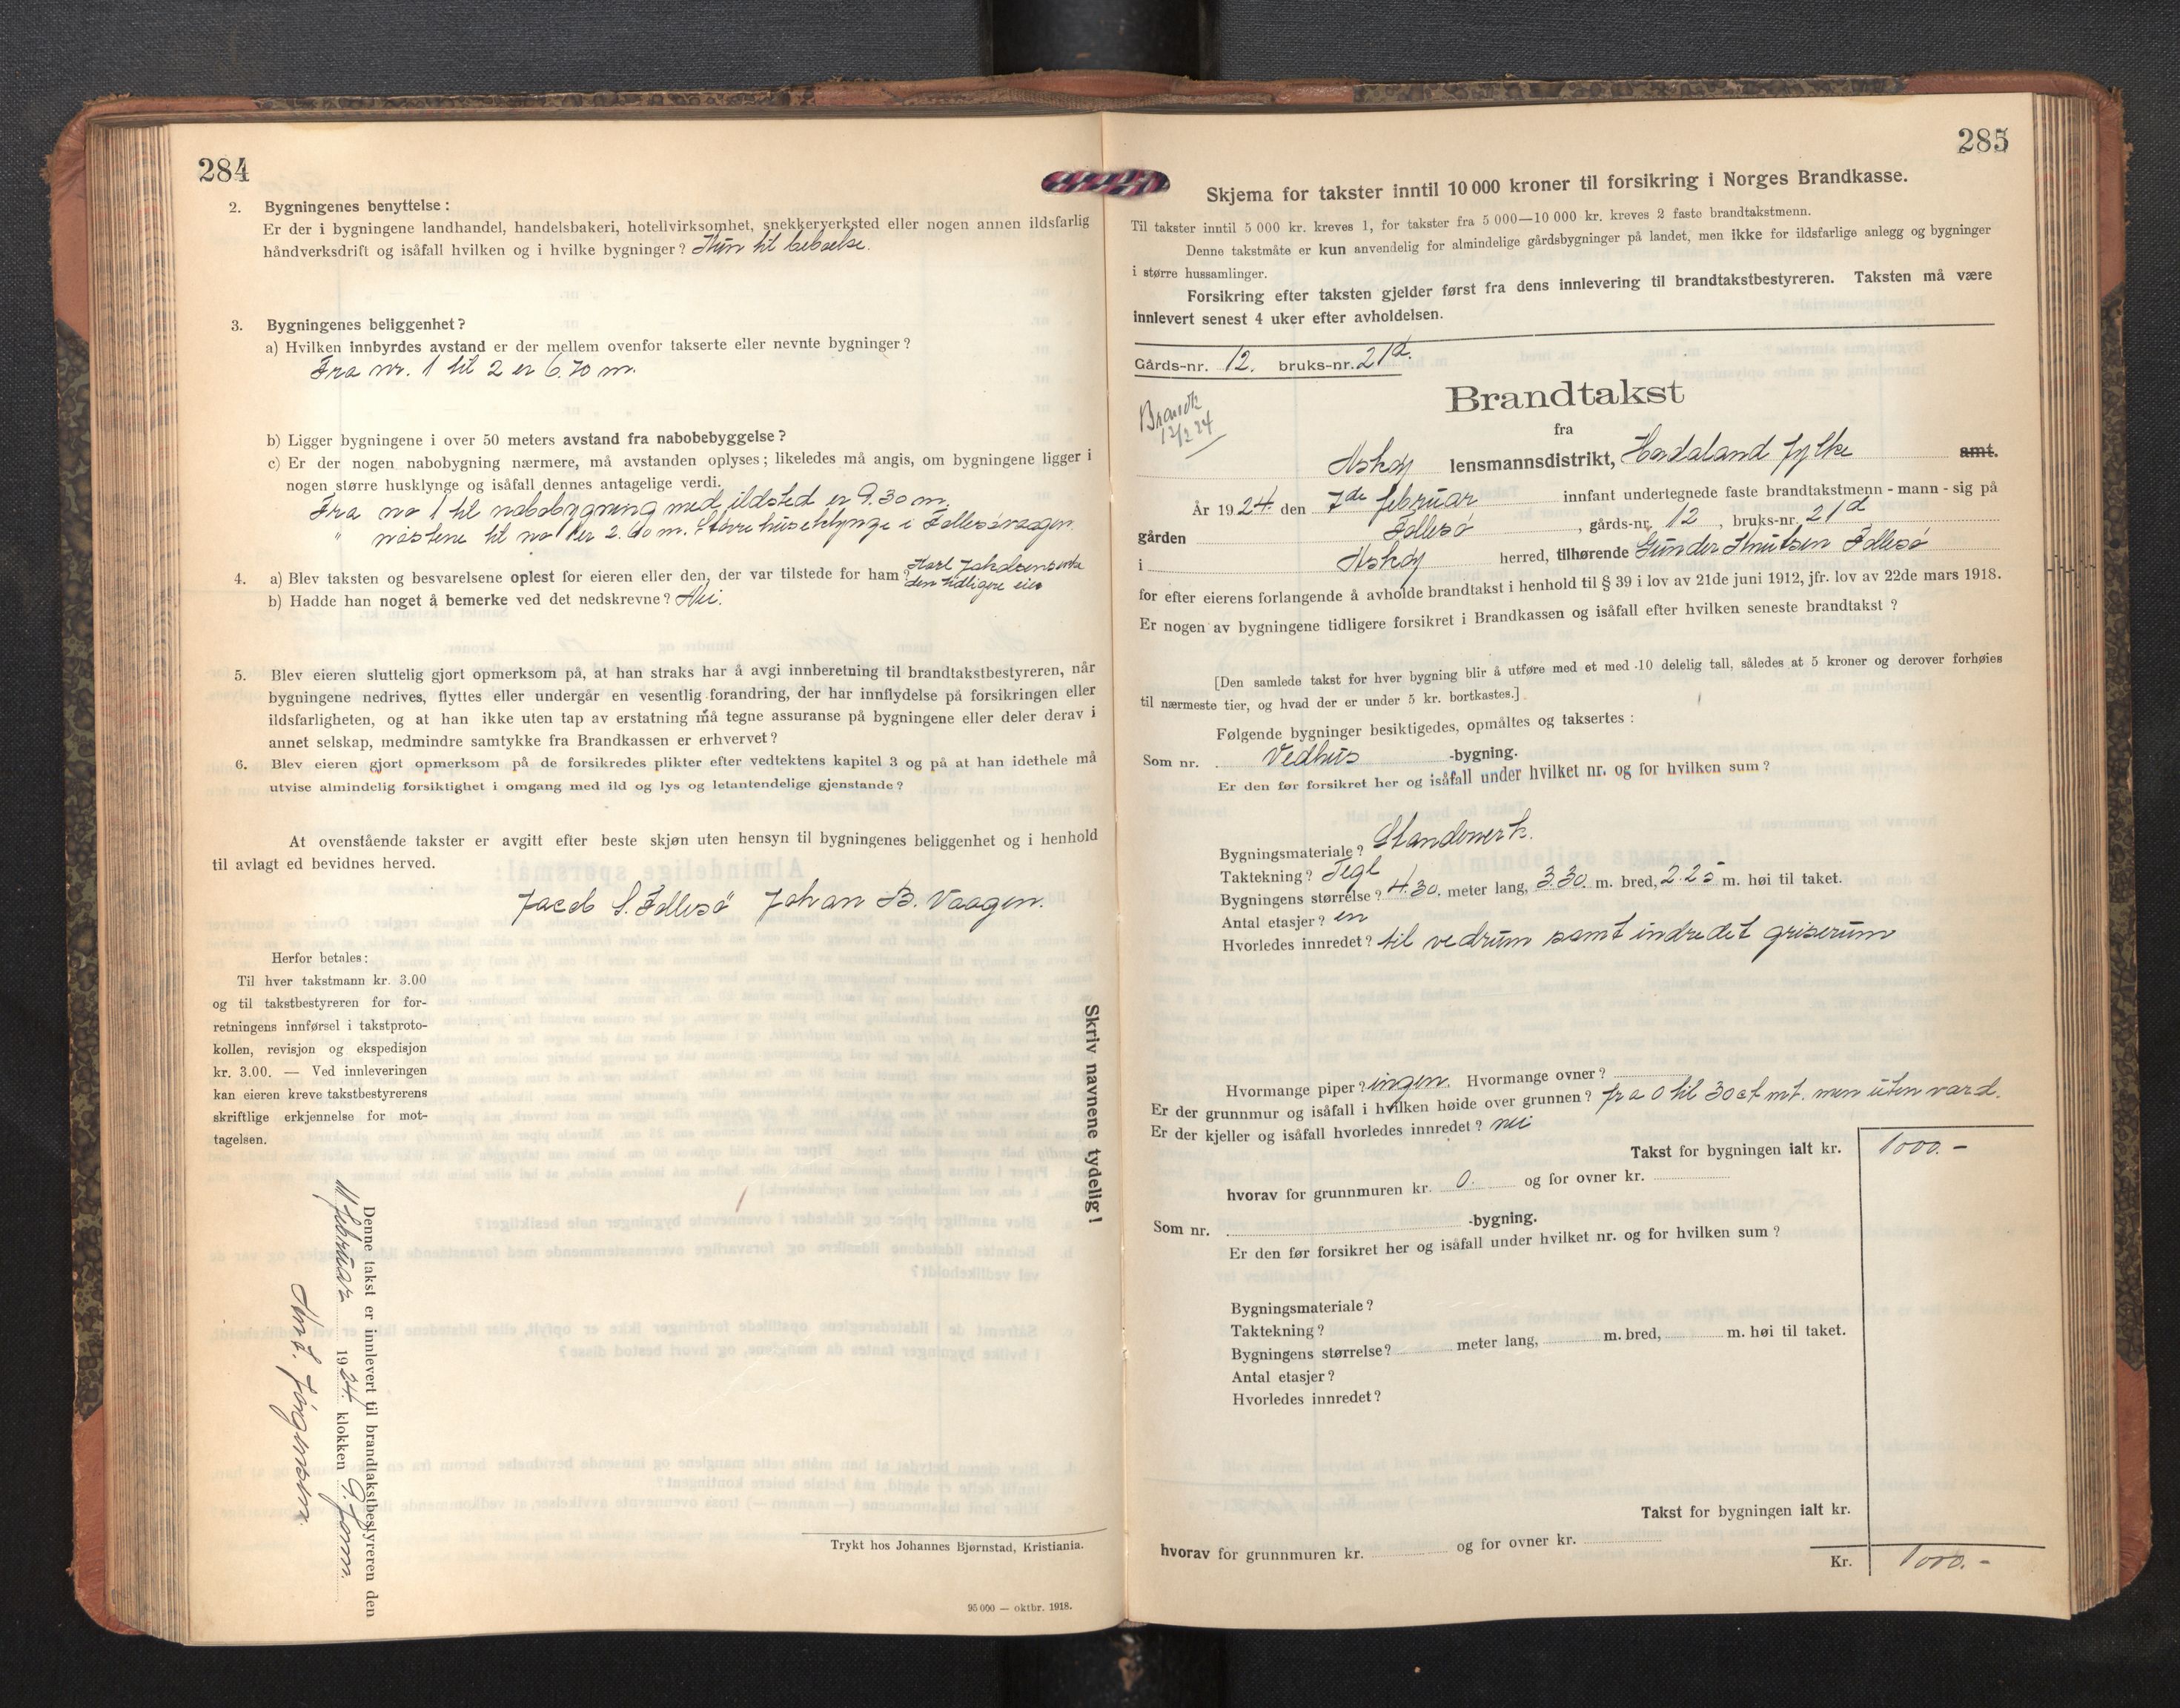 284
2. Bygningenes benyttelse:
Er der i bygningene landhandel, handelsbakeri, hotellvirksomhet, snekkerverksted eller nogen annen ildsfarlig
håndverksdrift og isåfall hvilken og i hvilke bygninger? Kun til bebøelse.
3. Bygningenes beliggenhet?
a) Hvilken innbyrdes avstand er der mellem ovenfor takserte eller nevnte bygninger?
Fra nr. 1 til 2 er 6.70 m.
b) Ligger bygningene i over 50 meters avstand fra nabobebyggelse?
c) Er der nogen nabobygning nærmere, må avstanden oplyses; likeledes må angis, om bygningene ligger i
nogen større husklynge og isåfall dennes antagelige verdi.
Fra no 1 til nabobygning med ildsted er 9.30 m.
" nøstene til no 1 er 2.60 m. Større huseklynge i Follesøvaagen.
4. a) Blev taksten og besvarelsene oplest for eieren eller den, der var tilstede for ham? Karl Jakobsen
den tidligere eier
b) Hadde han noget å bemerke ved det nedskrevne? Nei.
5. Blev eieren sluttelig gjort opmerksom på, at han straks har å avgi innberetning til brandtakstbestyreren, når
bygningene nedrives, flyttes eller undergår en vesentlig forandring, der har innflydelse på forsikringen eller
ildsfarligheten, og at han ikke uten tap av erstatning må tegne assuranse på bygningene eller deler derav i
annet selskap, medmindre samtykke fra Brandkassen er erhvervet?
6. Blev eieren gjort opmerksom på de forsikredes plikter efter vedtektens kapitel 3 og på at han idethele må
utvise almindelig forsiktighet i omgang med ild og lys og letantendelige gjenstande?
At ovenstående takster er avgitt efter beste skjøn uten hensyn til bygningenes beliggenhet og i henhold
til avlagt ed bevidnes herved.
Jacob S. Follesø Johan B. Vaagen.
Herfor betales:
Til hver takstmann kr. 3.00
og til takstbestyreren for for-
retningens innførsel i takstproto-
kollen, revisjon og ekspedisjon
kr. 3.00. — Ved innleveringen
kan eieren kreve takstbestyrerens
skriftlige erkjennelse for mot-
tagelsen.
Skriv navnene tydelig!
Denne takst er innlevert til brandtakstbestyreren den
11 februar 1924 klokken 9 form.
Jørgensen.
Trykt hos Johannes Bjørnstad, Kristiania.
95 000 — oktbr. 1918.
285
Skjema for takster inntil 10 000 kroner til forsikring i Norges Brandkasse.
Til takster inntil 5 000 kr. kreves 1, for takster fra 5 000—10 000 kr. kreves 2 faste brandtakstmenn.
Denne takstmåte er kun anvendelig for almindelige gårdsbygninger på landet, men ikke for ildsfarlige anlegg og bygninger
i større hussamlinger.
Forsikring efter taksten gjelder først fra dens innlevering til brandtakstbestyreren. Taksten må være
innlevert senest 4 uker efter avholdelsen.
Gårds-nr. 12. bruks-nr. 21d.
Brandtakst
Brandk
12/2 24
fra
Askøy lensmannsdistrikt, Hordaland fylke amt.
År 1924 den 7de februar innfant undertegnede faste brandtakstmenn - mann - sig på
gården Follesø, gårds-nr. 12, bruks-nr. 21d
i Askøy herred, tilhørende Gunder Knutsen Follesø
for efter eierens forlangende å avholde brandtakst i henhold til § 39 i lov av 21de juni 1912, jfr. lov av 22de mars 1918.
Er nogen av bygningene tidligere forsikret i Brandkassen og isåfall efter hvilken seneste brandtakst?
[Den samlede takst for hver bygning blir å utføre med et med 10 delelig tall, således at 5 kroner og derover forhøies
til nærmeste tier, og hvad der er under 5 kr. bortkastes.]
Følgende bygninger besiktigedes, opmåltes og taksertes:
Som nr. Vedhus -bygning.
Er den før forsikret her og isåfall under hvilket nr. og for hvilken sum?
Bygningsmateriale? Standverk.
Taktekning? Tegl
Bygningens størrelse? 4.30. meter lang, 3.30. m. bred, 2.25 m. høi til taket.
Antal etasjer? en
Hvorledes innredet? til vedrum samt indredet griserum
Hvormange piper? ingen. Hvormange ovner?
Er der grunnmur og isåfall i hvilken høide over grunnen? fra 0 til 30 ct mt. men uten værd.
Er der kjeller og isåfall hvorledes innredet? nei
Takst for bygningen ialt kr. 1000.-
hvorav for grunnmuren kr. 0. og for ovner kr.
Som nr. -bygning.
Er den før forsikret her og isåfall under hvilket nr. og for hvilken sum?
Bygningsmateriale?
Taktekning?
Bygningens størrelse? meter lang, m. bred, m. høi til taket.
Antal etasjer?
Hvorledes innredet?
Takst for bygningen ialt kr.
hvorav for grunnmuren kr. og for ovner kr.
Kr. 1000.-